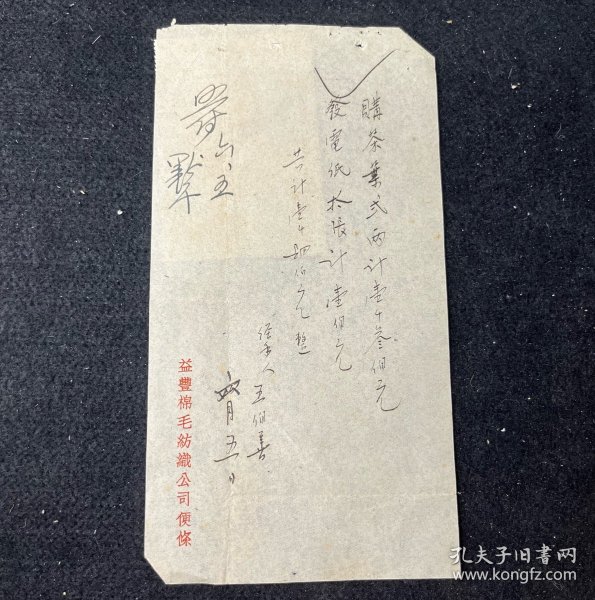 購茶葉弍兩計壹千叁佰元
發電纸拾張計壹佰元
共計壹千肆佰元整
經手人王伯善
四月五日
六、五
益豐棉毛紡織公司便條
孔夫子旧书网
www.kongfz.com